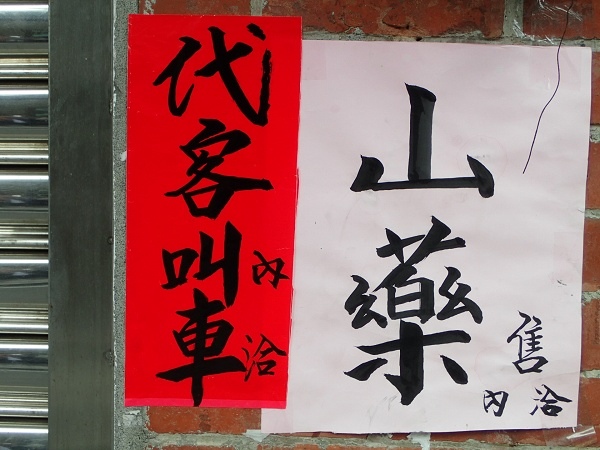 代客叫車
內洽
山藥
售
內洽